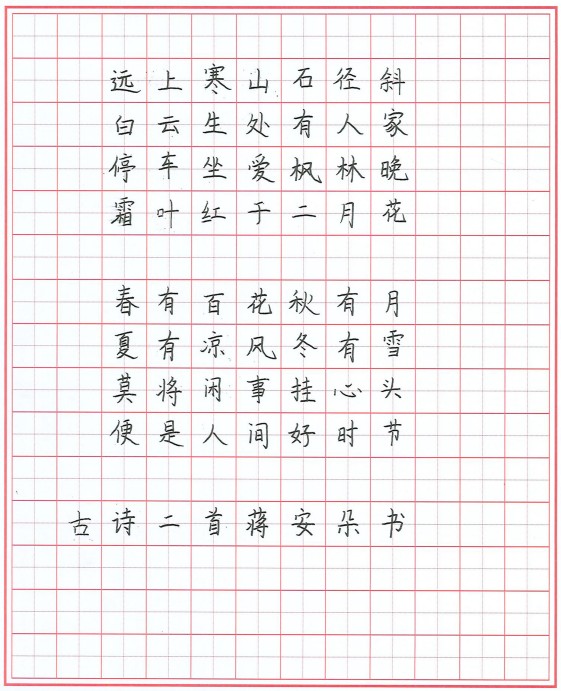 远上寒山石径斜
白云生处有人家
停车坐爱枫林晚
霜叶红于二月花
春有百花秋有月
夏有凉风冬有雪
莫将闲事挂心头
便是人间好时节
古诗二首蒋安朵书